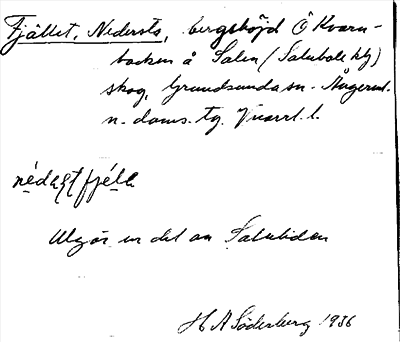 Fjället, Nedersta, bergshöjd Ö Kvarn-
backen å Salen (Salubole hg)
skog, Grundsunda sn. Ångerml.
n. doms. tg. Vnorrl. l.
nédagst fjélla
Utgör en del av Salutiden
H A Söderberg 1936